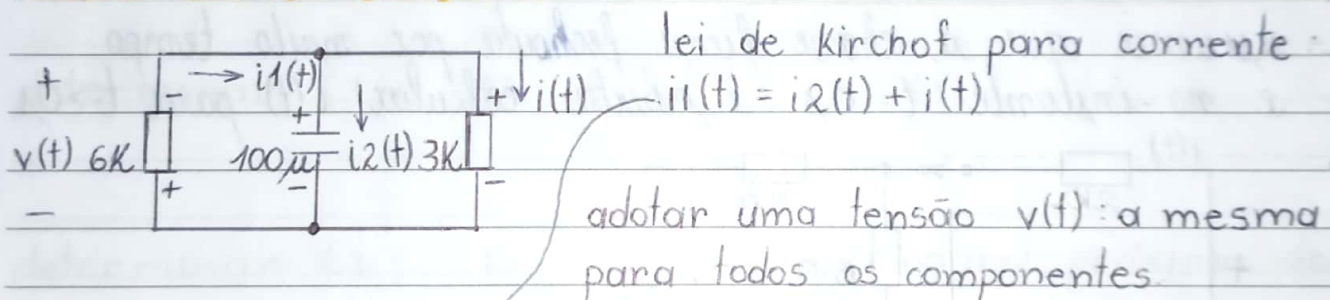 lei de Kirchof para corrente:
+ - → i1(t) + i(t) i1(t) = i2(t) + i(t)
v(t) 6K + 100µ + - i2(t) 3K -
- adotar uma tensão v(t): a mesma
para todos os componentes